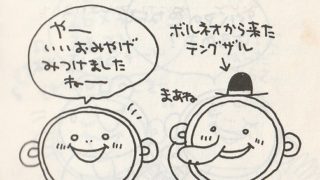 やー
いいおみやげ
みつけました
ねー
ボルネオから来た
テングザル
まあね